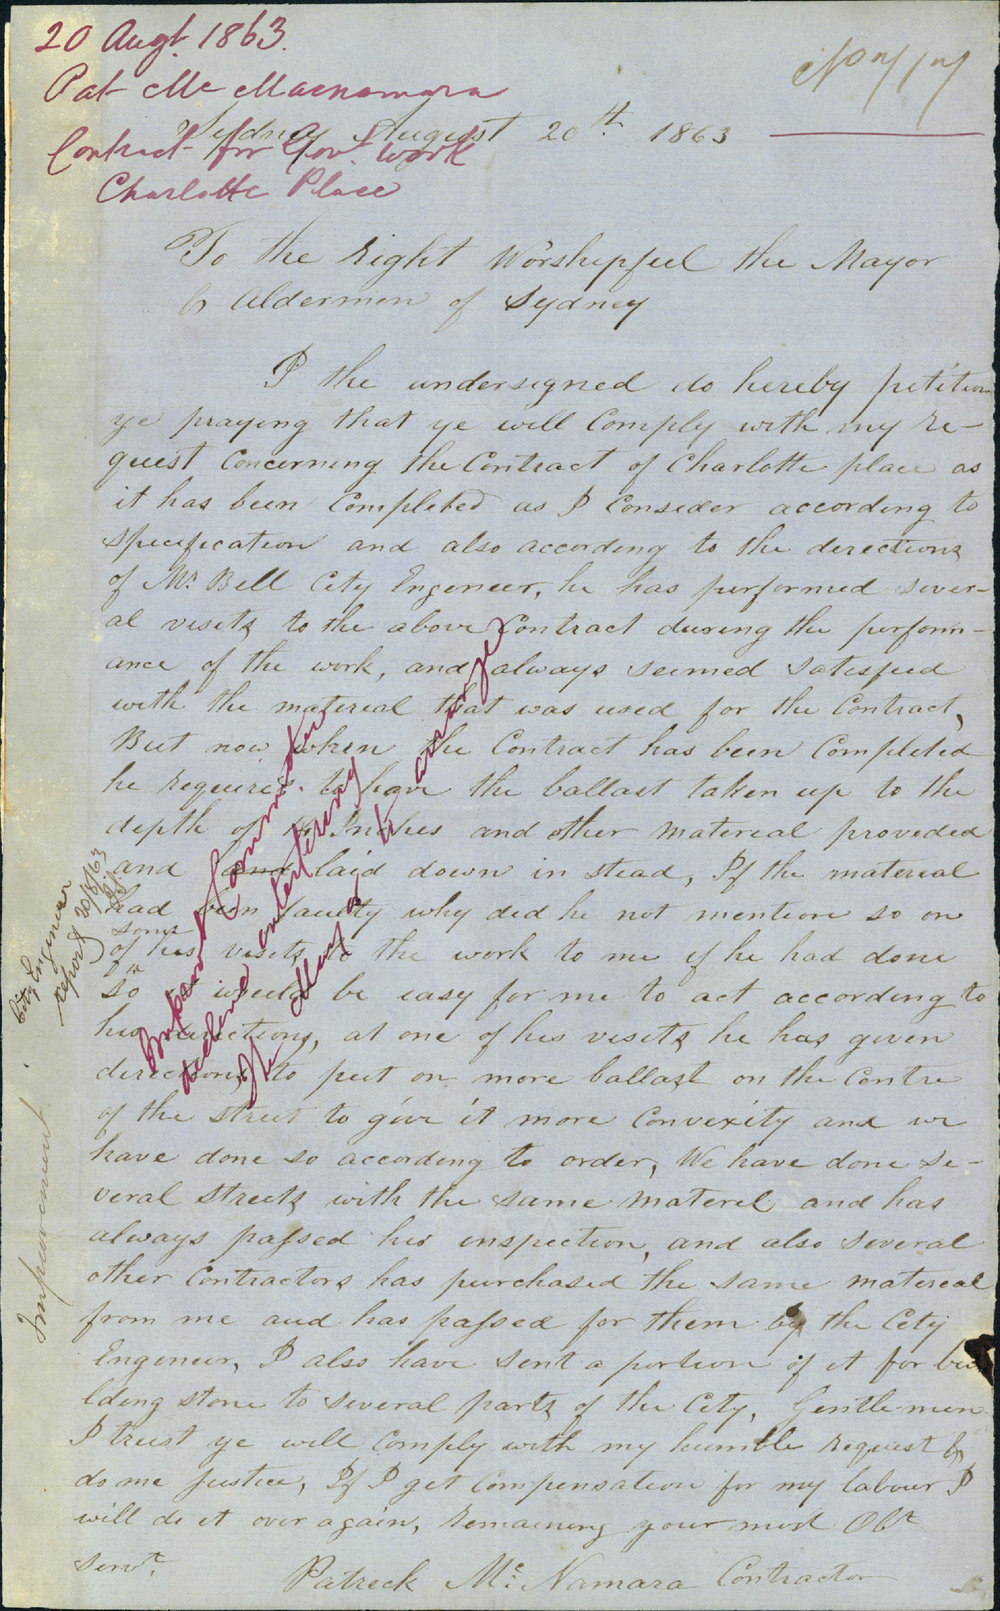 20 Augt. 1863.
Pat Mc Macnamara
Contract for Govt. work
Charlotte Place
Sydney August 20th 1863
To the Right Worshipfeel the Mayor
& Aldermen of Sydney
I the undersigned do hereby petition
ye praying that ye will Comply with my re-
quest Concerning the Contract of Charlotte place as
it has been Completed as I Consider according to
specification and also according to the derections
of Mr Bell City Engeneer, he has performed sever-
al visits to the above Contract dureing the perform-
ance of the work, and always seemed satesfied
with the matereal that was used for the Contract,
But now when the Contract has been Completed
he requires to have the ballast taken up to the
depth of 4 Inches and other matereal proveded
and and laid down in stead, If the matereal
had been faulty why did he not mention so on
some
of his visets to the work to me if he had done
so it would be easy for me to act according to
his directions, at one of his visets he has given
derections to put on more ballast on the Centre
of the street to give it more Convexity and we
have done so according to order, We have done se-
veral streets with the same Materel and has
always passed his enspection, and also several
other Contractors has purchased the same matereal
from me and has passed for them by the City
Engeneer, I also have sent a portion of it for bui
lding stone to several parts of the City, Gentlemen
I trust ye will Comply with my humble request &
do me Justice, If I get Compensation for my labour I
will do it over again, Remaining your most Obt
servt.
Patreck Mc. Namara Contractor
Improvement Committee
decline entertaining
to be arranged
City Engineer
report 20/8/63
Improvement.